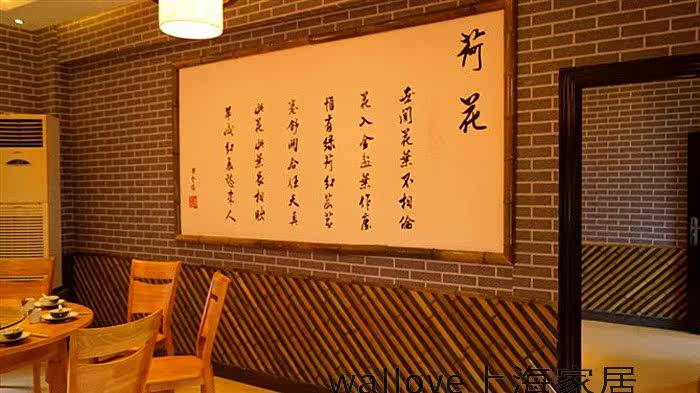 荷花
世间花葉不相倫
花入金盆葉作塵
惟有绿荷红菡萏
卷舒開合任天真
此花此葉長相映
翠减红衰愁煞人
wallove上海家居